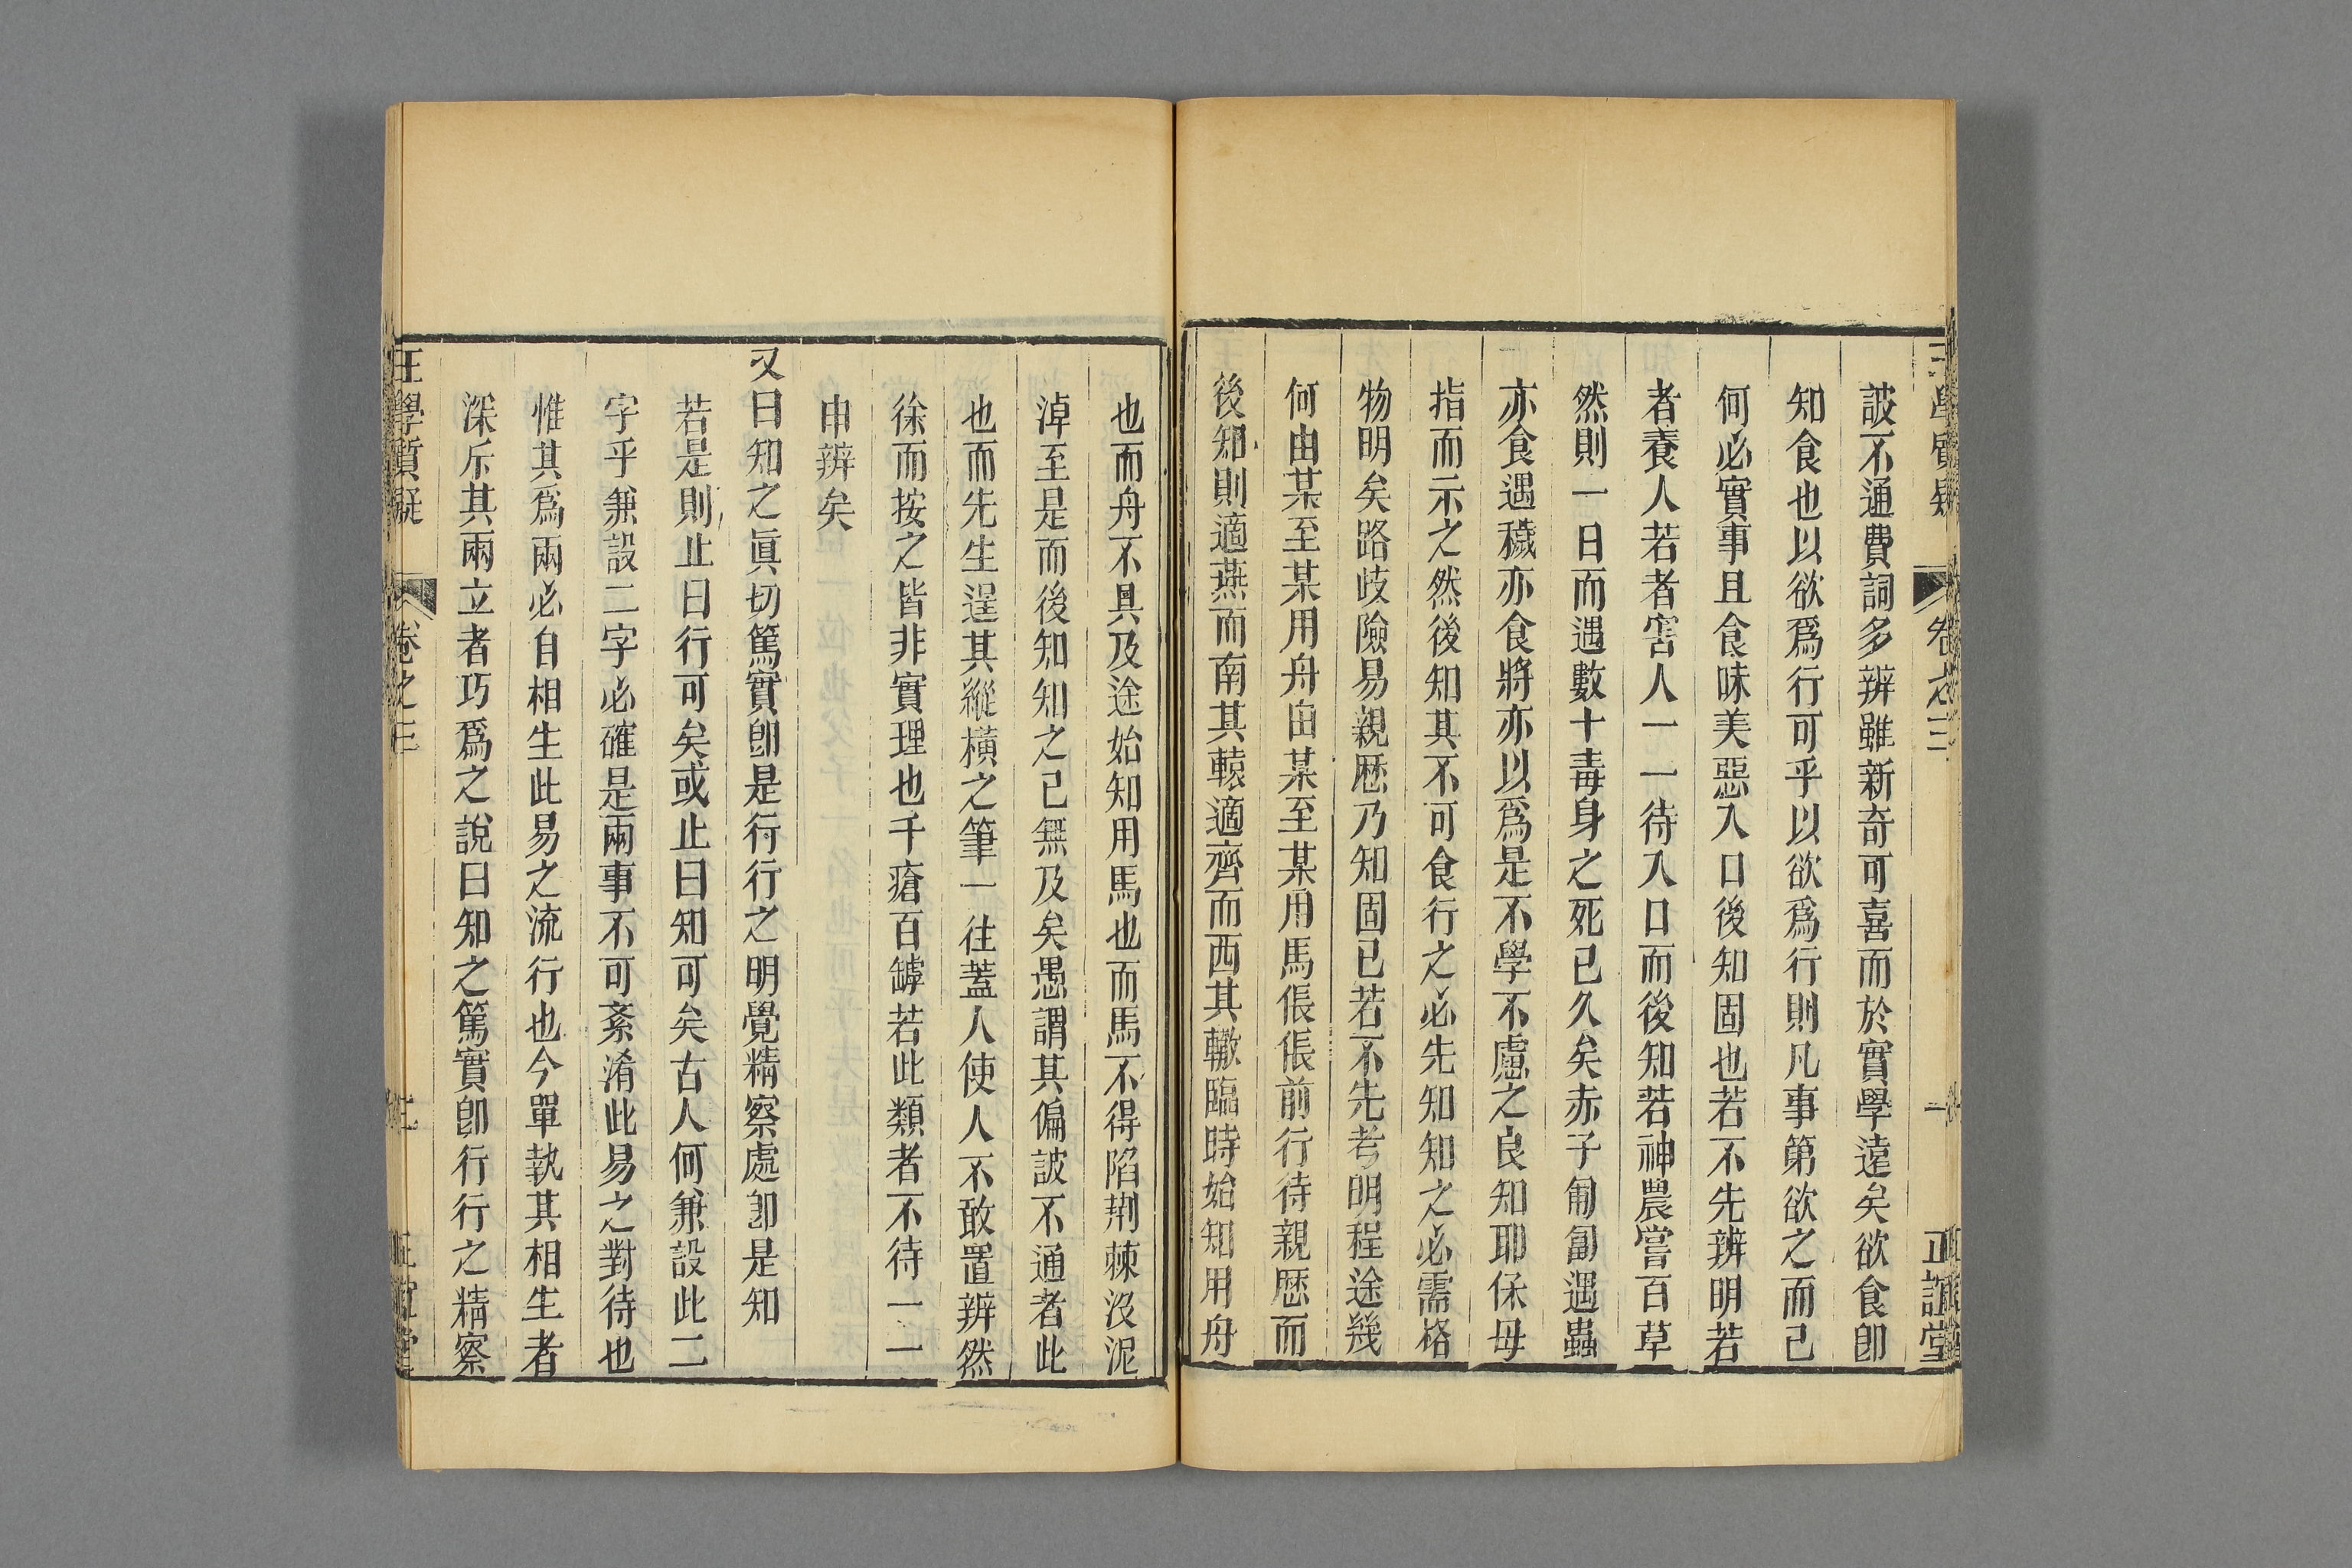 詖不通費詞多辨雖新奇可喜而於實學遠矣欲食卽
知食也以欲爲行可乎以欲爲行則凡事第欲之而已
何必實事且食味美惡入口後知固也若不先辨明若
者養人若者害人一一待入口而後知若神農嘗百草
然則一日而遇數十毒身之死已久矣赤子匍匐遇蟲
亦食遇穢亦食將亦以爲是不學不慮之良知耶保母
指而示之然後知其不可食行之必先知知之必需格
物明矣路歧險易親歷乃知固已若不先考明程途幾
何由某至某用舟由某至某用馬倀倀前行待親歷而
後知則適燕而南其轅適齊而西其轍臨時始知用舟
也而舟不具及途始知用馬也而馬不得陷荆棘沒泥
淖至是而後知知之已無及矣愚謂其偏詖不通者此
也而先生逞其縱橫之筆一往蓋人使人不敢置辨然
徐而按之皆非實理也千瘡百罅若此類者不待一一
申辨矣
又曰知之眞切篤實卽是行行之明覺精察處卽是知
若是則止曰行可矣或止曰知可矣古人何兼設此二
字乎兼設二字必確是兩事不可紊淆此易之對待也
惟其爲兩必自相生此易之流行也今單執其相生者
深斥其兩立者巧爲之說曰知之篤實卽行行之精察
王學質疑 卷之三 正誼堂